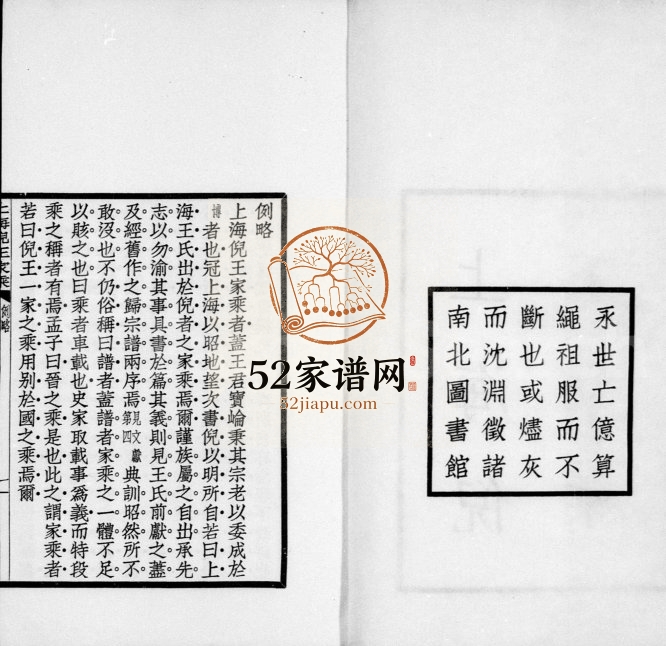 永世亡億算
繩祖服而不
斷也或燼灰
而沈淵徵諸
南北圖書館
例略
上海倪王家乘者蓋王君寶崘秉其宗老以委成於
博者也冠上海以昭地望次書倪以明所自若曰上
海王氏出於倪者之家乘焉爾謹族屬之自出承先
志以勿渝其事具書於篇其義則見王氏前獻之蓋
及經舊作之歸宗譜兩序焉見文獻第四典訓昭然所不
敢沒也不仍俗稱曰譜者蓋譜者家乘之一體不足
以賅之也曰乘者車載也史家取載事爲義而特段
乘之稱者有焉孟子曰晉之乘是也此之謂家乘者
若曰倪王一家之乘用别於國之乘焉爾
上海倪王家乘
例略
一
52家谱网
52jiapu.com